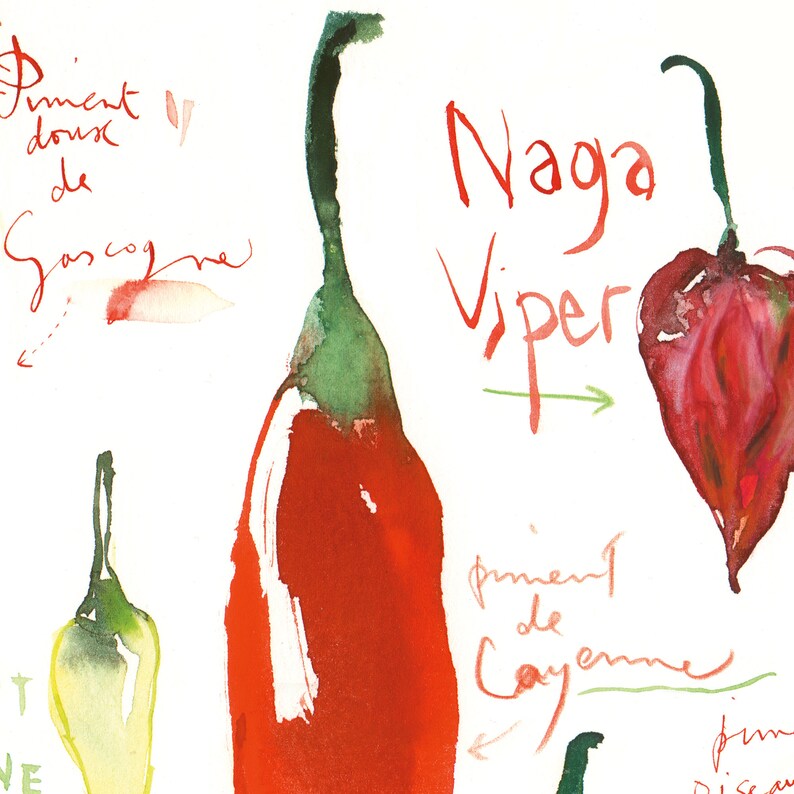 Piment
doux
de
Gascogne
Naga
Viper
piment
de
Cayenne